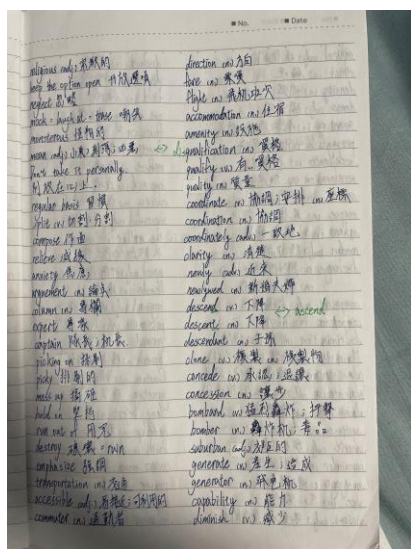 No.
Date
religious (adj.)
keep the option open 開放選項
neglect 忽略
mock = laugh at = tease 嘲笑
monsterous
mean (adj.)
Don't take it personally.
別放在心上.
regular basis 習慣
split (v.) 切割、分割
compose 作曲
relieve 減緩
anxiety 焦慮
arguement (n.)
column (n.) 專欄
expert 專家
captain 隊長；机長
picking on 挑剔
picky 挑剔的
mess up 搞砸
hold on 堅持
run out of 用完
destroy 破壞 = ruin
emphasize 強調
transportation (n.)
accessible (adj.) 易接近；可利用的
commuter (n.) 通勤者
direction (n.) 方向
fare (n.) 票價
flight (n.) 飛机班次
accommodation (n.) 住宿
amenity (n.) 設施
qualification (n.) 資格
qualify (v.) 有..資格
quality (n.) 質量
coordinate (v.) 協調；安排 (n.) 座標
coordination (n.) 協調
coordinately (adv.) 一致地
clarity (n.) 清楚
newly (adv.) 近來
newlywed (n.) 新婚夫婦
descend (v.) 下降 ⇔ ascend
descent (n.) 下降
descendant (n.) 子孫
clone (v.) 複製 (n.) 複製物
concede (v.) 承認；退讓
concession (n.) 讓步
bombard (v.) 猛利轟炸；抨擊
bomber (n.) 轟炸机
suburban (adj.)
generate (v.) 產生；造成
generator (n.)
capability (n.) 能力
diminish (v.) 減少